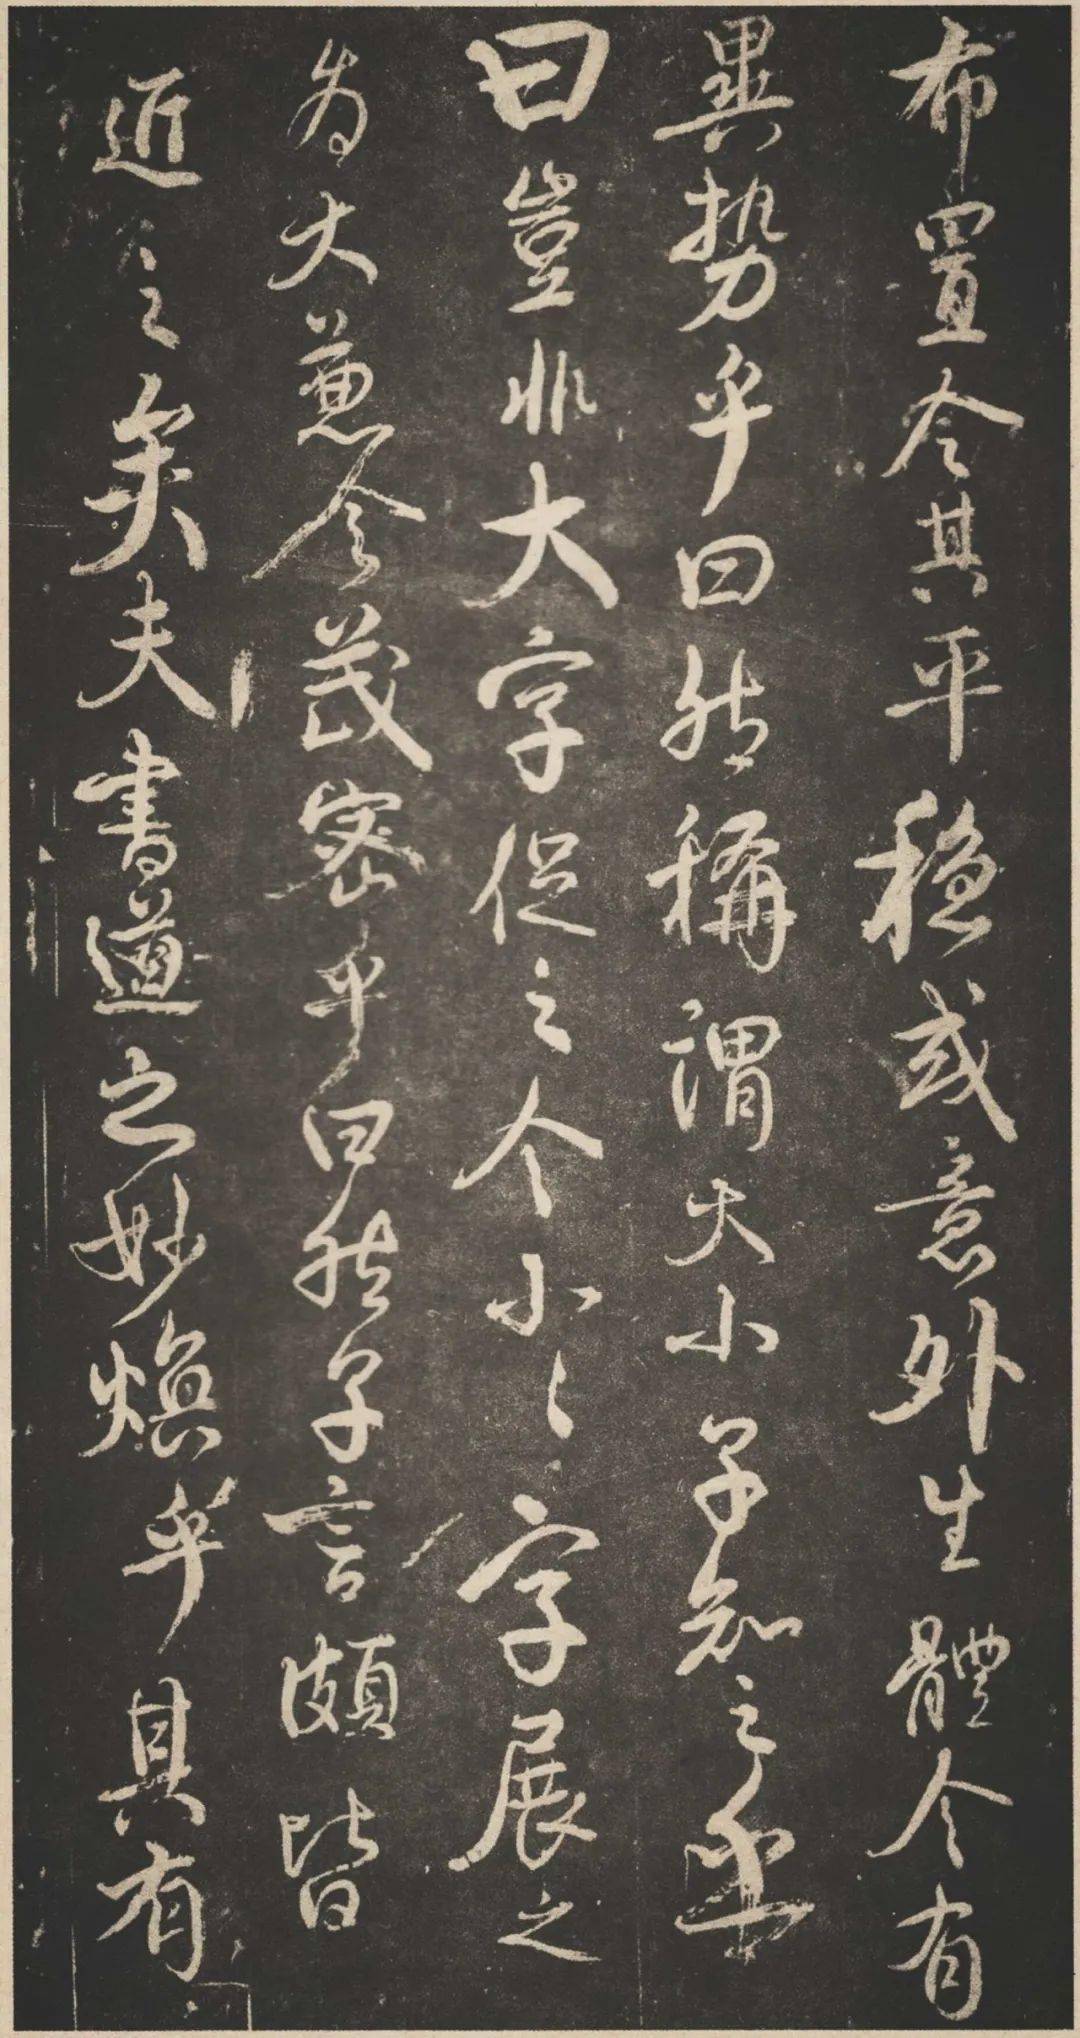 布置令其平穩或意外生體令有
異勢乎曰然稱謂大小子知之
曰豈非大字促之令小〻字展之
為大兼令茂密乎曰然子言頗皆
近之矣夫書道之妙煥乎其有